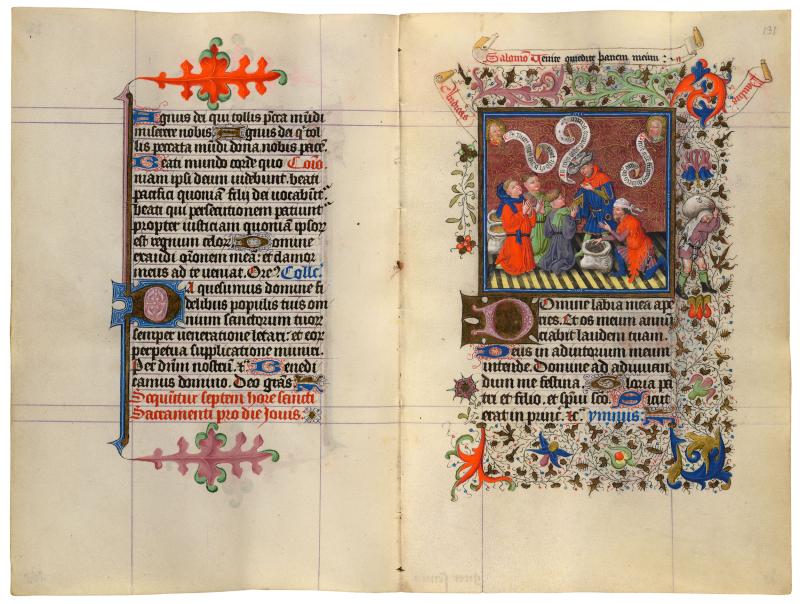 Agnus dei qui tollis pcca mūdi
miserere nobis. Agnus dei q̄ tol
lis peccata mūdi dona nobis pacē.
Beati mundo corde quo Com̄o
niam ipsi deum videbunt. beati
pacifici quoniam filij dei vocabūt̄
beati qui persecutionem paciunt̄
propter iusticiam quoniam ipsor̄
est regnum celor̄. Domine
exaudi orōnem mea: et clamor
meus ad te veniat. Ore? Collc̄.
Da quesumus domine fi
delibus populis tuis om
nium sanctorum tuor̄
semper veneratione letari: et eor̄
perpetua supplicatione muniri.
Per dn̄m nostrū. &. Benedi
camus domino. Deo grās.
Sequūtur septem hore sancti
Sacramenti pro die Jovis.
131
Salomō Venite comedite panem meum:
Paulus
Domine labia mea ape
ries. Et os meum annū
ciabit laudem tuam.
Deus in adiutorium meum
intende. Domine ad adiuuan
dum me festina. Gloria pa
tri et filio. et spūi scō. Sicut
erat in princ̄. &c. ymnus.